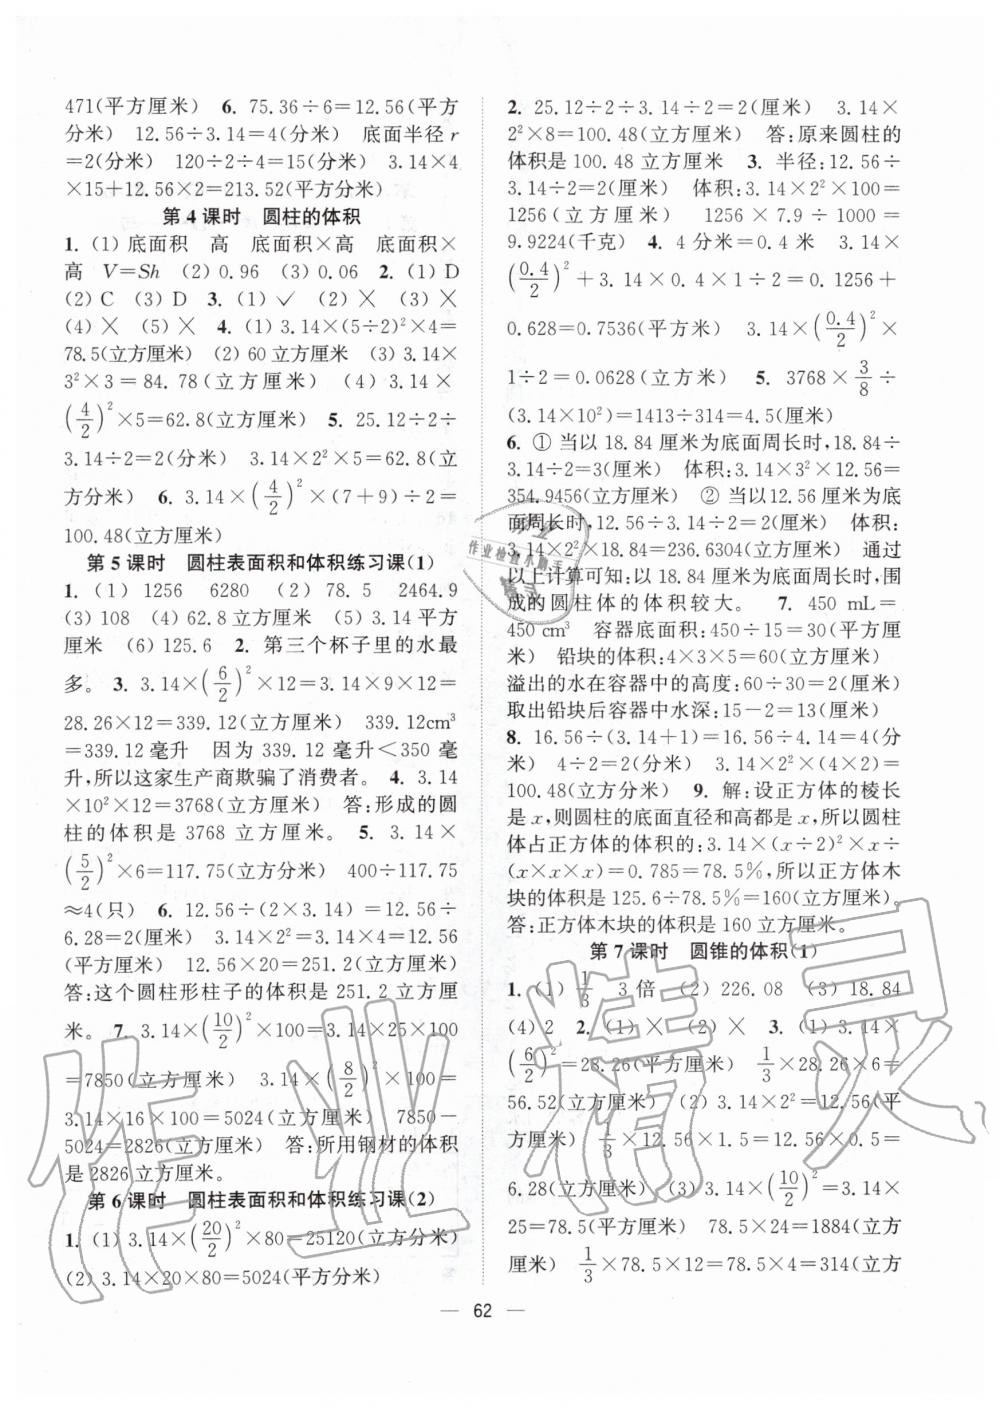 471(平方厘米)　6. 75.36÷6=12.56(平方
分米)　12.56÷3.14=4(分米)　底面半径 r
=2(分米)　120÷2÷4=15(分米)　3.14×4
×15+12.56×2=213.52(平方分米)
第 4 课时　圆柱的体积
1. (1)底面积　高　底面积×高　底面积×
高　V=Sh　(2)0.96　(3)0.06　2. (1)D
(2)C　(3)D　3. (1)✓　(2)×　(3)×
(4)×　(5)×　4. (1)3.14×(5÷2)²×4=
78.5(立方厘米)　(2)60 立方厘米　(3)3.14×
3²×3=84.78(立方厘米)　(4)3.14×
(4/2)²×5=62.8(立方厘米)　5. 25.12÷2÷
3.14÷2=2(分米)　3.14×2²×5=62.8(立
方分米)　6. 3.14×(4/2)²×(7+9)÷2=
100.48(立方厘米)
第 5 课时　圆柱表面积和体积练习课(1)
1. (1)1256　6280　(2)78.5　2464.9
(3)108　(4)62.8 立方厘米　(5)3.14 平方
厘米　(6)125.6　2. 第三个杯子里的水最
多。　3. 3.14×(6/2)²×12=3.14×9×12=
28.26×12=339.12(立方厘米)　339.12cm³
=339.12 毫升　因为 339.12 毫升<350 毫
升,所以这家生产商欺骗了消费者。　4. 3.14
×10²×12=3768(立方厘米)　答:形成的圆
柱的体积是 3768 立方厘米。　5. 3.14×
(5/2)²×6=117.75(立方分米)　400÷117.75
≈4(只)　6. 12.56÷(2×3.14)=12.56÷
6.28=2(分米)　3.14×2²=12.56
(平方分米)　12.56×20=251.2(立方分米)
答:这个圆柱形柱子的体积是 251.2 立方分
米。　7. 3.14×(10/2)²×100=3.14×25×100
=7850(立方厘米)　3.14×(8/2)²×100=
3.14×16×100=5024(立方厘米)　7850-
5024=2826(立方厘米)　答:所用钢材的体积
是 2826 立方厘米。
第 6 课时　圆柱表面积和体积练习课(2)
1. (1)3.14×(20/2)²×80=25120(立方分米)
(2)3.14×20×80=5024(平方分米)
2. 25.12÷2÷3.14÷2=2(厘米)　3.14×
2²×8=100.48(立方厘米)　答:原来圆柱的
体积是 100.48 立方厘米　3. 半径:12.56÷
3.14÷2=2(厘米)　体积:3.14×2²×100=
1256(立方厘米)　1256×7.9÷1000=
9.9224(千克)　4. 4 分米=0.4 米　3.14×
(0.4/2)²+3.14×0.4×1÷2=0.1256+
0.628=0.7536(平方米)　3.14×(0.4/2)²×
1÷2=0.0628(立方米)　5. 3768×3/8÷
(3.14×10²)=1413÷314=4.5(厘米)
6. ①当以 18.84 厘米为底面周长时,18.84÷
3.14÷2=3(厘米)　体积:3.14×3²×12.56=
354.9456(立方厘米)　②当以12.56厘米为底
面周长时,12.56÷3.14÷2=2(厘米)　体积:
3.14×2²×18.84=236.6304(立方厘米)　通过
以上计算可知:以 18.84 厘米为底面周长时,围
成的圆柱体的体积较大。　7. 450 mL=
450 cm³　容器底面积:450÷15=30(平方厘
米)　铅块的体积:4×3×5=60(立方厘米)
溢出的水在容器中的高度:60÷30=2(厘米)
取出铅块后容器中水深:15-2=13(厘米)
8. 16.56÷(3.14+1)=16.56÷4.14=4(分
米)　4÷2=2(分米)　3.14×2²×(4×2)=
100.48(立方分米)　9. 解:设正方体的棱长
是 x,则圆柱的底面直径和高都是 x,所以圆柱
体占正方体的体积的:3.14×(x÷2)²×x÷
(x×x×x)=0.785=78.5%,所以正方体木
块的体积是:125.6÷78.5%=160(立方厘米)。
答:正方体木块的体积是 160 立方厘米。
第 7 课时　圆锥的体积(1)
1. (1)1/3　3 倍　(2)226.08　(3)18.84
(4)2　2. (1)×　(2)×　3. (1)3.14×
(6/2)²=28.26(平方厘米)　1/3×28.26×6=
56.52(立方厘米)　(2)3.14×2²=12.56(平
方厘米)　1/3×12.56×1.5=12.56×0.5=
6.28(立方厘米)　(3)3.14×(10/2)²=3.14×
25=78.5(平方厘米)　78.5×24=1884(立方
厘米)　1/3×78.5×12=78.5×4=314(立方
— 62 —
作业检查小助手
作业精灵